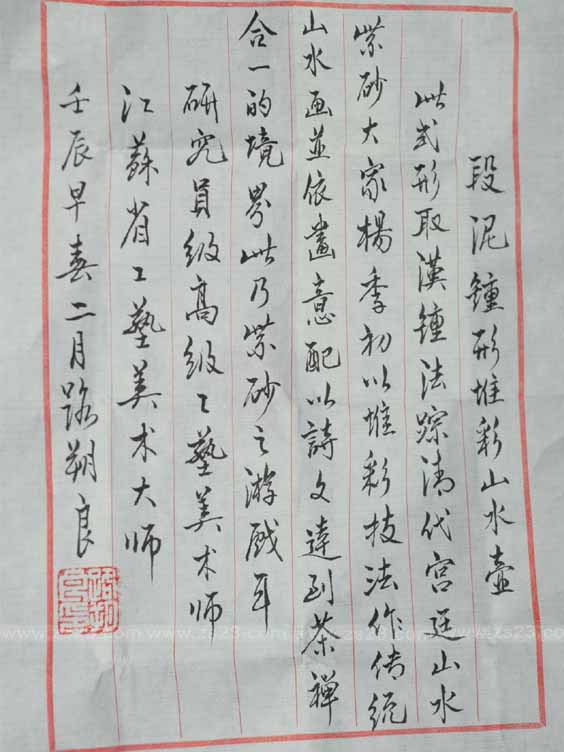 段泥鍾形堆彩山水壶
此式形取漢鍾法踪清代宫廷山水
紫砂大家楊季初以堆彩技法作传统
山水画並依畫意配以詩文達到茶禅
合一的境界此乃紫砂之游戲耳
研究員级高级工藝美术师
江蘇省工藝美术大师
壬辰早春二月路朔良